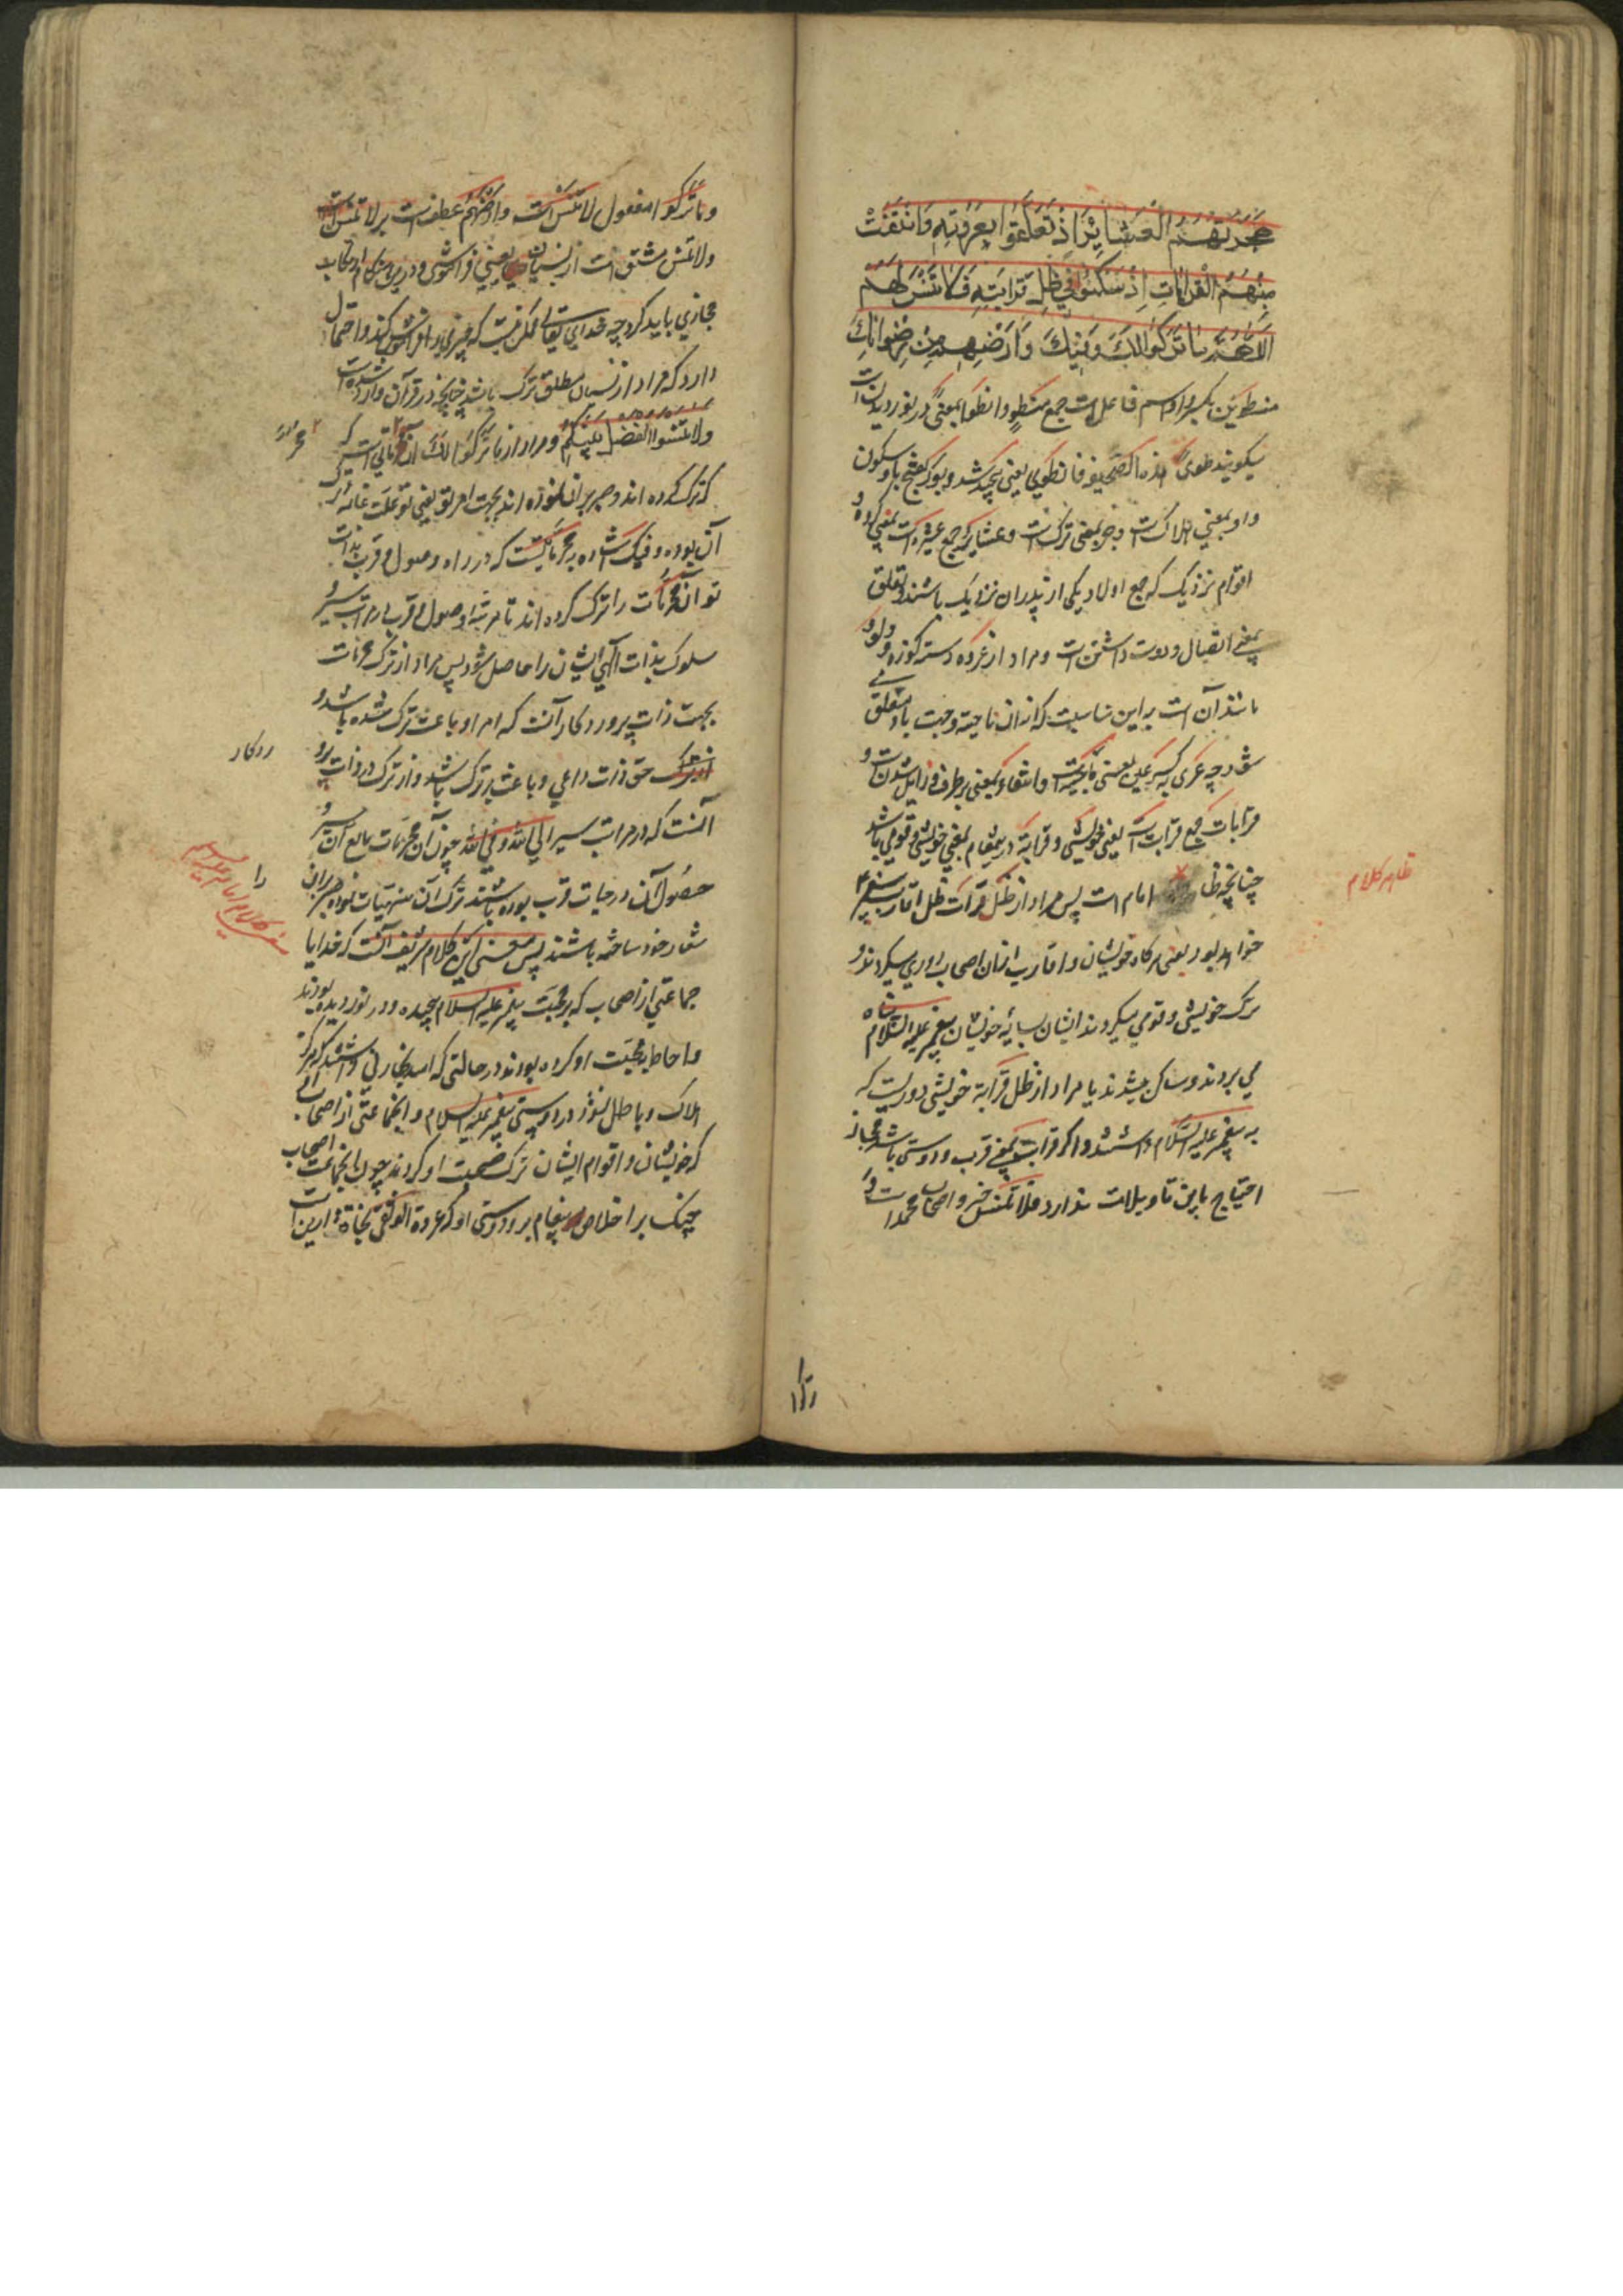 هَجَرَتْهُمُ الْعَشَايِرُ اِذْ تَعَلَّقُوا بِعُرْوَتِهِ وَانْتَفَتْ
مِنْهُمُ الْقَرَابَاتِ اِذْ سَكَنُوا فِي ظِلِّ قَرَابَتِهِ فَلَا تَنْسَ لَهُمُ
اللّٰهُمَّ مَا تَرَكُوا لَكَ وَفِيكَ وَاَرْضِهِمْ مِنْ رِضْوَانِكَ
منطوین بکسر واو اسم فاعل است جمع منطوٍ وانطوا بمعنی در نوردیدن است
میکویند طوی هذه الصحیفه فانطوی یعنی پیچید شد وبور بفتح با وسکون
واو بمعنی هلاک است وهجر بمعنی ترک است وعشایر جمع عشیره است بمعنی کروه و
اقوام نزدیک که جمع اولاد یکی از پدران نزدیک باشند وتعلق
بمعنی اتصال ودوست داشتن است ومراد از عروه دسته کوزه ودلو و
مانند آن است براین مناسبت که از آن ناحیة وجهت باو متعلق
شود چه عری بکسر عین بمعنی ناحیه است وانتفاء بمعنی برطرف وزایل شدن است و
قرابات جمع قرابت است یعنی خویشی وقرابة درینمقام بمعنی خویشی وقومی باشد
چنانچه ظا امام است پس مراد از ظل قرابت ظل اقارب پیغمبر
ظاهر کلام
خواهد بود یعنی هرکاه خویشان واقارب ازان اصحاب دوری میکردند و
ترک خویشی وقومی میکردند ایشان بسایه خویشان پیغمبر علیه السلام پناه
می بردند وساکن میشدند یا مراد از ظل قرابة خویشی دوریست که
به پیغمبر علیه السلام داشتند واکر قرابت بمعنی قرب ودوستی باشد مجاز
احتیاج باین تاویلات ندارد فلا تنس خبر واصحاب محمد است و
وما ترکوا مفعول لاتنس است وارضهم عطف است بر لاتنس
ولاتنس مشتق است از نسیان یعنی فراموشی ودرین مقام ارتکاب
مجازی باید کرد چه خدای تعالی ممکن نیست که چیزی را فراموش کند واحتمال
دارد که مراد از نسیان مطلق ترک باشد چنانچه در قرآن وارد شده است
ولا تنسوا الفضل بینکم ومراد از ما ترکوا لک آن است
که ترک کرده اند وصبر بران نموده اند بجهت امر تو یعنی تو علت غائی
آن بوده وفیک اشاره به محرماتیست که در راه وصول وقرب بذات
تو آن محرمات را ترک کرده اند تا مرتبه وصول وقرب مراتب سیر و
سلوک بذات الهی ایشان را حاصل شود پس مراد از ترک محرمات
بجهت ذات پروردکار آنست که امر او باعث ترک شده باشد و
ردکار
حق ذات داعی وباعث بر ترک باشد واز ترک در ذات پرو
آنست که در مراتب سیر الی الله وفی الله چون آن محرمات مانع آن سیر و
حصول آن درجات قرب بوده باشند ترک آن منهیات نموده صبر بران
را
شعار خود ساخته باشند پس معنی این کلام شریف آنست که خدایا
جماعتی از اصحاب که بر محبت پیغمبر علیه السلام پیچیده ودر نوردیده بودند
واحاطه محبت او کرده بودند در حالتی که امید تجارتی داشتند که هرکز
هلاک وباطل نشود در دوستی پیغمبر علیه السلام وانجماعتی از اصحاب
که خویشان واقوام ایشان ترک صحبت او کردند چون انجماعت اصحاب
چنک بر اخلاص پیغام بر ودوستی او که عروة الوثقی نجاة دارین است